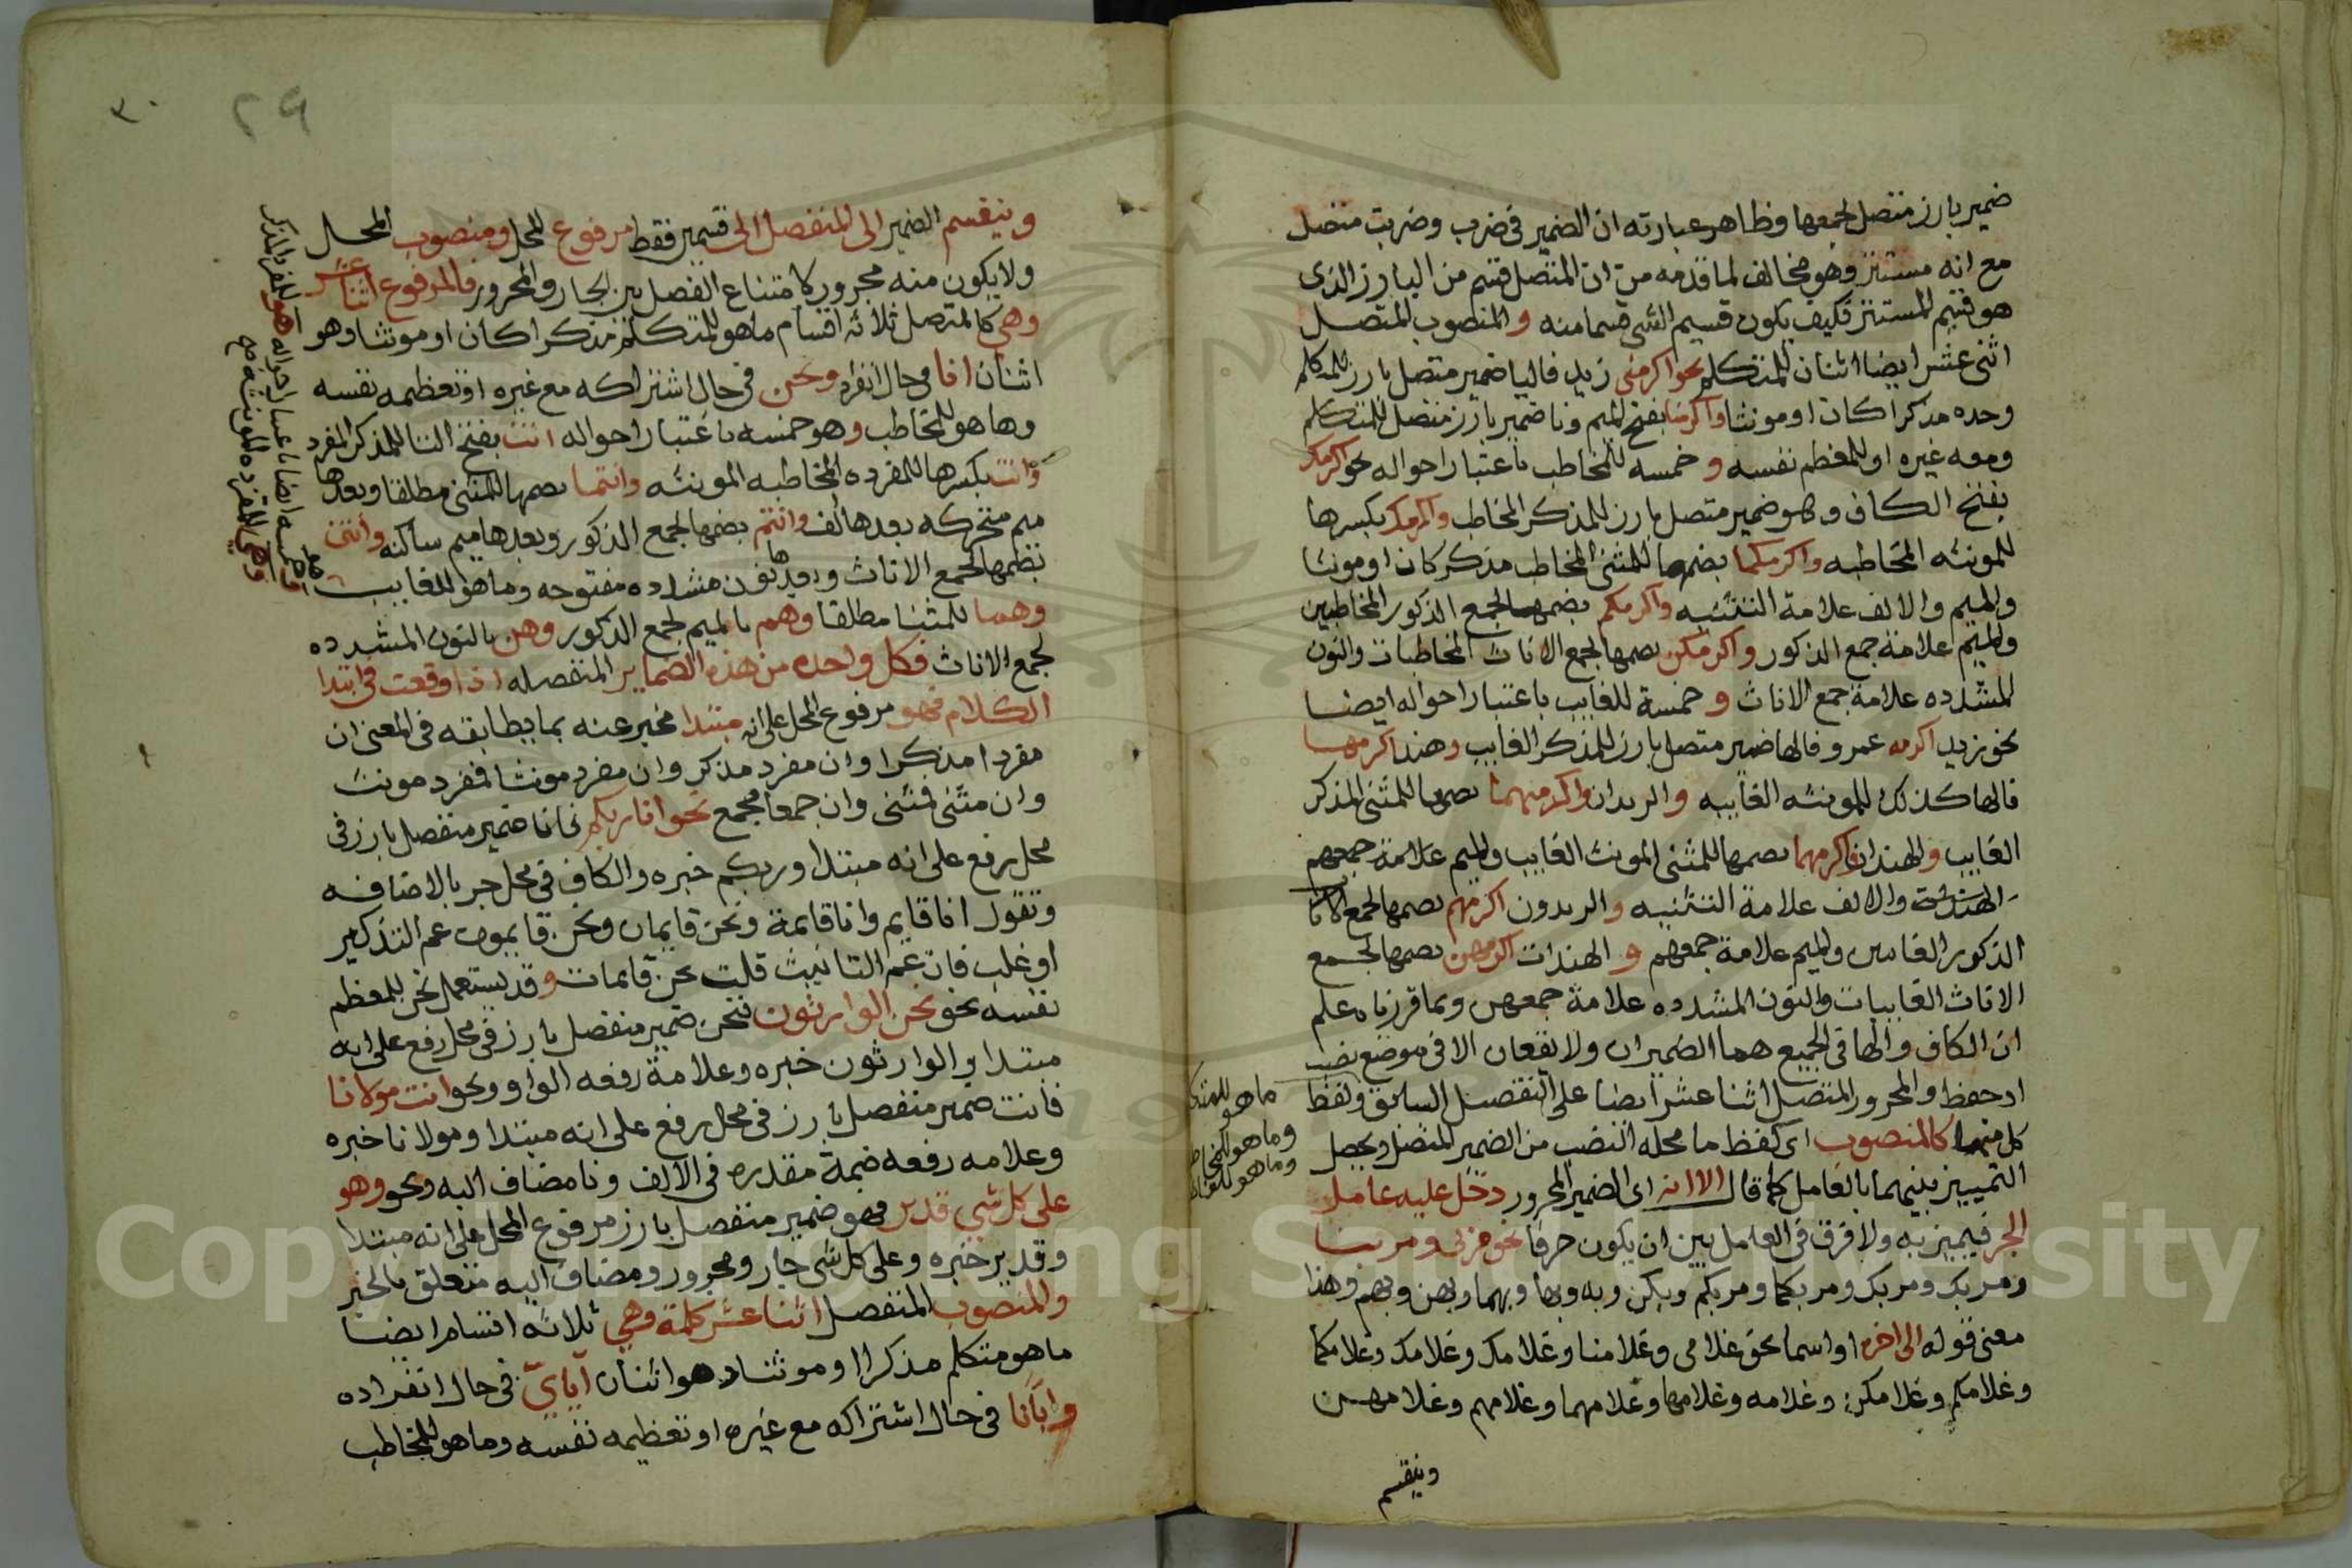 ضمير بارز متصل لجمعها وظاهر عبارته ان الضمير فى ضرب وضربت متصل
مع انه مستتر وهو مخالف لما قدمه من ان المتصل قسم من البارز الذى
هو قسيم المستتر فكيف يكون قسيم الشى قسما منه والمنصوب المتصل
اثنى عشر ايضا اثنان للمتكلم نحو اكرمنى زيد فاليا ضمير متصل بارز للمتكلم
وحده مذكرا كان او مونثا واكرمنا بفتح الميم ونا ضمير بارز متصل للمتكلم
ومعه غيره او للمعظم نفسه و خمسه للمخاطب باعتبار احواله نحو اكرمك
بفتح الكاف وهو ضمير متصل بارز للمذكر المخاطب واكرمك بكسرها
للمونثه المخاطبه واكرمكما بضمها للمثنى المخاطب مذكر كان او مونثا
والميم والالف علامة التثنيه واكرمكم بضمها لجمع الذكور المخاطبين
والميم علامة جمع الذكور واكرمكن بصمها لجمع الاناث المخاطبات والنون
المشدده علامة جمع الاناث و خمسة للغايب باعتبار احواله ايضا
نحو زيد اكرمه عمرو فالها ضمير متصل بارز للمذكر الغايب وهند اكرمها
فالها كذلك للمونثه الغايبه والزيدان واكرمهما بصمها للمثنى المذكر
الغايب والهندان اكرمهما بصمها للمثنى المونث الغايب والميم علامة جمعهم
والالف علامة التثنيه والزيدون اكرمهم بصمها لجمع
الذكور الغايبين والميم علامة جمعهم و الهندات اكرمهن بصمها لجمع
الاناث الغايبات والنون المشدده علامة جمعهن وبما قررناه علم
ان الكاف والها فى الجميع هما الضميران ولا يقعان الا فى موضع نصب
او خفظ والمجرور المتصل اثنا عشر ايضا على التفصيل السابق ولفظ
كل منهما كالمنصوب اى كلفظ ما محله النصب من الضمير المتصل ويحصل
التمييز بينهما بالعامل كما قال الا انه اى الضمير المجرور دخل عليه عامل
الجر فيميز به ولا فرق فى العامل بين ان يكون حرفا نحو مر بى ومر بنا
ومر بك ومر بك ومر بكما ومر بكم وبكن وبه وبها وبهما وبهن وبهم وهذا
معنى قوله الى اخره او اسما نحو غلامى وغلامنا وغلامك وغلامك وغلامكما
وغلامكم وغلامكن وغلامه وغلامها وغلامهما وغلامهم وغلامهن
وينقسم
ما هو للمتكلم
وما هو للمخاطب
وما هو للغايب
٣٠
٢٩
وينقسم الضمير الى المنفصل الى قسمين فقط مرفوع المحل ومنصوب المحل
ولا يكون منه مجرور لامتناع الفصل بين الجار والمجرور فالمرفوع اثنا عشر
وهى كالمتصل ثلاثه اقسام ما هو للمتكلم مذكرا كان او مونثا وهو
اثنان انا فى حال انفراده ونحن فى حال اشتراكه مع غيره او تعظيمه نفسه
وما هو للمخاطب وهو خمسه باعتبار احواله انت بفتح التا للمذكر المفرد
وانت بكسرها للمفرده المخاطبه المونثه وانتما بصمها للمثنى مطلقا وبعدها
ميم متحركه بعدها الف وانتم بضمها لجمع الذكور وبعدها ميم ساكنه وانتن
بضمها لجمع الاناث وبعدها نون مشدده مفتوحه وما هو للغايب
وهما للمثنا مطلقا وهم بالميم لجمع الذكور وهن بالنون المشدده
لجمع الاناث فكل واحده من هذه الضماير المنفصله اذا وقعت فى ابتدا
الكلام فهو مرفوع المحل على انه مبتدا مخبر عنه بما يطابقه فى المعنى ان
مفردا مذكرا وان مفرد مذكر وان مفرد مونثا فمفرد مونث
وان مثنى فمثنى وان جمعا فجمع نحو انا ربكم فانا ضمير منفصل بارز فى
محل رفع على انه مبتدا وربكم خبره والكاف فى محل جر بالاضافه
وتقول انا قايم وانا قايمة ونحن قايمان ونحن قايمون عم التذكير
او غلب فان عم التانيث قلت نحن قايمات وقد يستعمل نحن للمعظم
نفسه نحو نحن الوارثون فنحن ضمير منفصل بارز فى محل رفع على انه
مبتدا والوارثون خبره وعلامة رفعه الواو ونحو انت مولانا
فانت ضمير منفصل بارز فى محل رفع على انه مبتدا ومولانا خبره
وعلامه رفعه ضمة مقدره فى الالف ونا مضاف اليه ونحو وهو
على كل شى قدير فهو ضمير منفصل بارز مرفوع المحل على انه مبتدا
وقدير خبره وعلى كل شى جار ومجرور ومضاف اليه متعلق بالخبر
والمنصوب المنفصل اثنا عشر كلمة وهى ثلاثه اقسام ايضا
ما هو متكلم مذكرا او مونثا وهو اثنان اياى فى حال انفراده
وايانا فى حال اشتراكه مع غيره او تعظيمه نفسه وما هو للمخاطب
وهو خمسه ايضا باعتبار احواله هو للمفرد المذكر
وهى للمفرده المونثه صح
Copyright © King Saud University